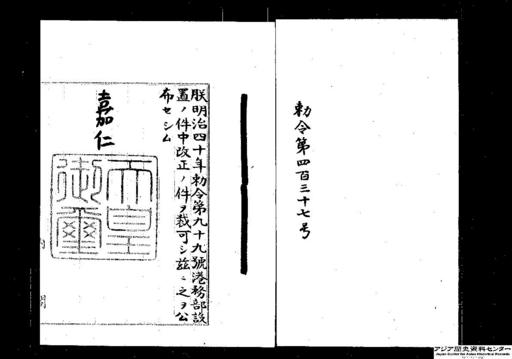 勅令第四百三十七号
朕明治四十年勅令第九十九號港務部設
置ノ件中改正ノ件ヲ裁可シ茲ニ之ヲ公
布セシム
嘉仁
天皇御璽
アジア歴史資料センター
Japan Center for Asian Historical Records